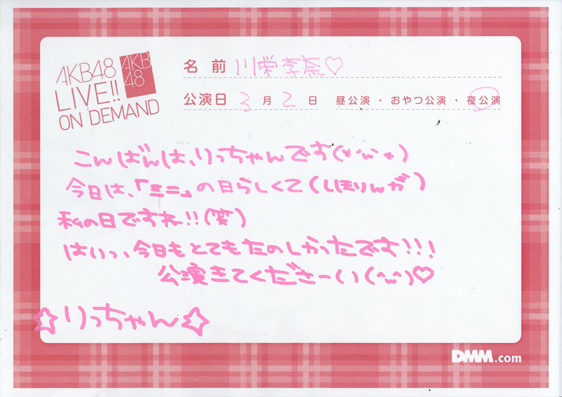 AKB48
LIVE!!
ON DEMAND
AKB
48
名前 川栄李奈♡
公演日 3月2日 昼公演・おやつ公演・夜公演
こんばんは、りっちゃんです(*^ω^*)
今日は、「ミニ」の日らしくて(しほりんが)
私の日ですね!!(笑)
はいっ、今日もとてもたのしかったです!!!
公演きてくださーい(^ω^)♡
☆りっちゃん☆
DMM.com